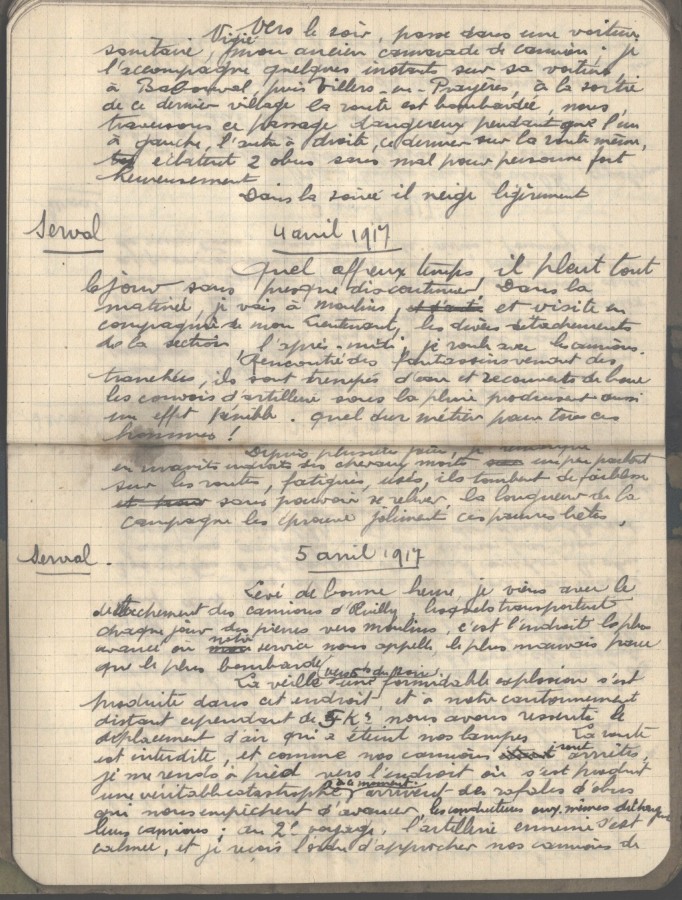 Vers le soir, passe dans une voiture
sanitaire, mon ancien camarade de camion ; je
l'accompagne quelques instants sur sa voiture
à Ba, puis Villers-en-Prayères, à la sortie
de ce dernier village la route est bombardée, nous
traversons ce passage dangereux pendant que l'un
à gauche, l'autre à droite, ce dernier sur la route même,
éclatent 2 obus sans mal pour personne fort
heureusement
Dans la soirée il neige légèrement
Serval 4 avril 1917
Quel affreux temps, il pleut tout
le jour sans presque discontinuer Dans la
matinée, je vais à Moulins, et visite en
compagnie de mon Lieutenant, les divers détachements
de la section, l'après-midi, je roule avec les camions.
Rencontré des fantassins venant des
tranchées, ils sont trempés d'eau et recouverts de boue
les convois d'artillerie sous la pluie produisent aussi
un effet pénible. Quel dur métier pour tous ces
hommes !
Depuis plusieurs jours, je remarque
en maints endroits des chevaux morts un peu partout
sur les routes, fatigués, usés, ils tombent de faiblesse
sans pouvoir se relever la longueur de la
campagne les éprouve joliment ces pauvres bêtes.
Serval. 5 avril 1917
Levé de bonne heure je viens avec le
détachement des camions d'Œuilly, lesquels transportent
chaque jour des pierres vers Moulins, c'est l'endroit le plus
avancé où notre service nous appelle, le plus mauvais parce
que le plus bombardé
La veille vers 5h du soir une formidable explosion s'est
produite dans cet endroit et à notre cantonnement
distant cependant de 5 Ks nous avons ressenti le
déplacement d'air qui a éteint nos lampes La route
est interdite, et comme nos camions sont arrêtés,
je me rends à pied vers l'endroit où s'est produit
une véritable catastrophe, à ce moment arrivent des rafales d'obus
qui nous empêchent d'avancer, les conducteurs eux-mêmes déchargent
leurs camions ; au 2e voyage, l'artillerie ennemie s'est
calmée, et je reçois l'ordre d'approcher nos camions de